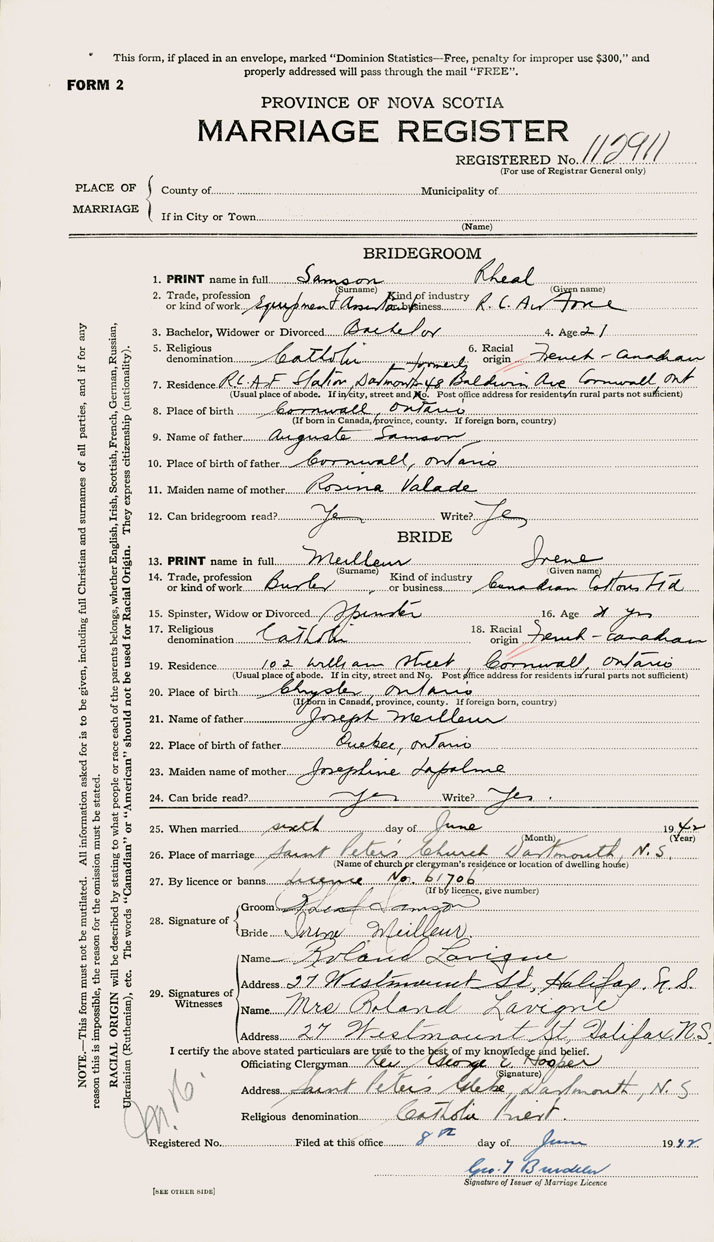 This form, if placed in an envelope, marked "Dominion Statistics—Free, penalty for improper use $300," and
properly addressed will pass through the mail "FREE".
FORM 2
PROVINCE OF NOVA SCOTIA
MARRIAGE REGISTER
REGISTERED No. 112911
(For use of Registrar General only)
PLACE OF MARRIAGE
County of Municipality of
If in City or Town
(Name)
BRIDEGROOM
1. PRINT name in full Samson Rheal
(Surname) (Given name)
2. Trade, profession or kind of work Equipment Kind of industry or business R.C. Air Force
3. Bachelor, Widower or Divorced Bachelor 4. Age 21
5. Religious denomination Catholic 6. Racial origin French-Canadian
formerly
7. Residence R.C.A.F Station, Dartmouth 48 Baldwin Ave Cornwall, Ont
(Usual place of abode. If in city, street and No. Post office address for residents in rural parts not sufficient)
8. Place of birth Cornwall, Ontario
(If born in Canada, province, county. If foreign born, country)
9. Name of father Auguste Samson
10. Place of birth of father Cornwall, Ontario
11. Maiden name of mother Rosina Valade
12. Can bridegroom read? Yes Write? Yes
BRIDE
13. PRINT name in full Meilleur Irene
(Surname) (Given name)
14. Trade, profession or kind of work Burler Kind of industry or business Canadian Cottons Ltd
15. Spinster, Widow or Divorced Spinster 16. Age 21 yrs
17. Religious denomination Catholic 18. Racial origin French-Canadian
19. Residence 102 William Street, Cornwall, Ontario
(Usual place of abode. If in city, street and No. Post office address for residents in rural parts not sufficient)
20. Place of birth Chrysler, Ontario
(If born in Canada, province, county. If foreign born, country)
21. Name of father Joseph Meilleur
22. Place of birth of father Quebec, Ontario
23. Maiden name of mother Josephine Lapalme
24. Can bride read? Yes Write? Yes.
25. When married sixth day of June 1942
(Month) (Year)
26. Place of marriage Saint Peter's Church Dartmouth, N.S.
(Name of church or clergyman's residence or location of dwelling house)
27. By licence or banns License No. 61706
(If by licence, give number)
28. Signature of
Groom Rheal Samson
Bride Irene Meilleur.
29. Signatures of Witnesses
Name Roland Lavigne
Address 27 Westmount St, Halifax. N.S.
Name Mrs Roland Lavigne
Address 27 Westmount St, Halifax N.S.
I certify the above stated particulars are true to the best of my knowledge and belief.
Officiating Clergyman Rev. George E. Hooper
(Signature)
Address Saint Peter's Glebe, Dartmouth, N.S
Religious denomination Catholic Priest.
Registered No. Filed at this office 8th day of June 1942
Geo. T
Signature of Issuer of Marriage Licence
[SEE OTHER SIDE]
NOTE.—This form must not be mutilated. All information asked for is to be given, including full Christian and surnames of all parties, and if for any
reason this is impossible, the reason for the omission must be stated.
RACIAL ORIGIN will be described by stating to what people or race each of the parents belongs, whether English, Irish, Scottish, French, German, Russian,
Ukrainian (Ruthenian), etc. The words "Canadian" or "American" should not be used for Racial Origin. They express citizenship (nationality).